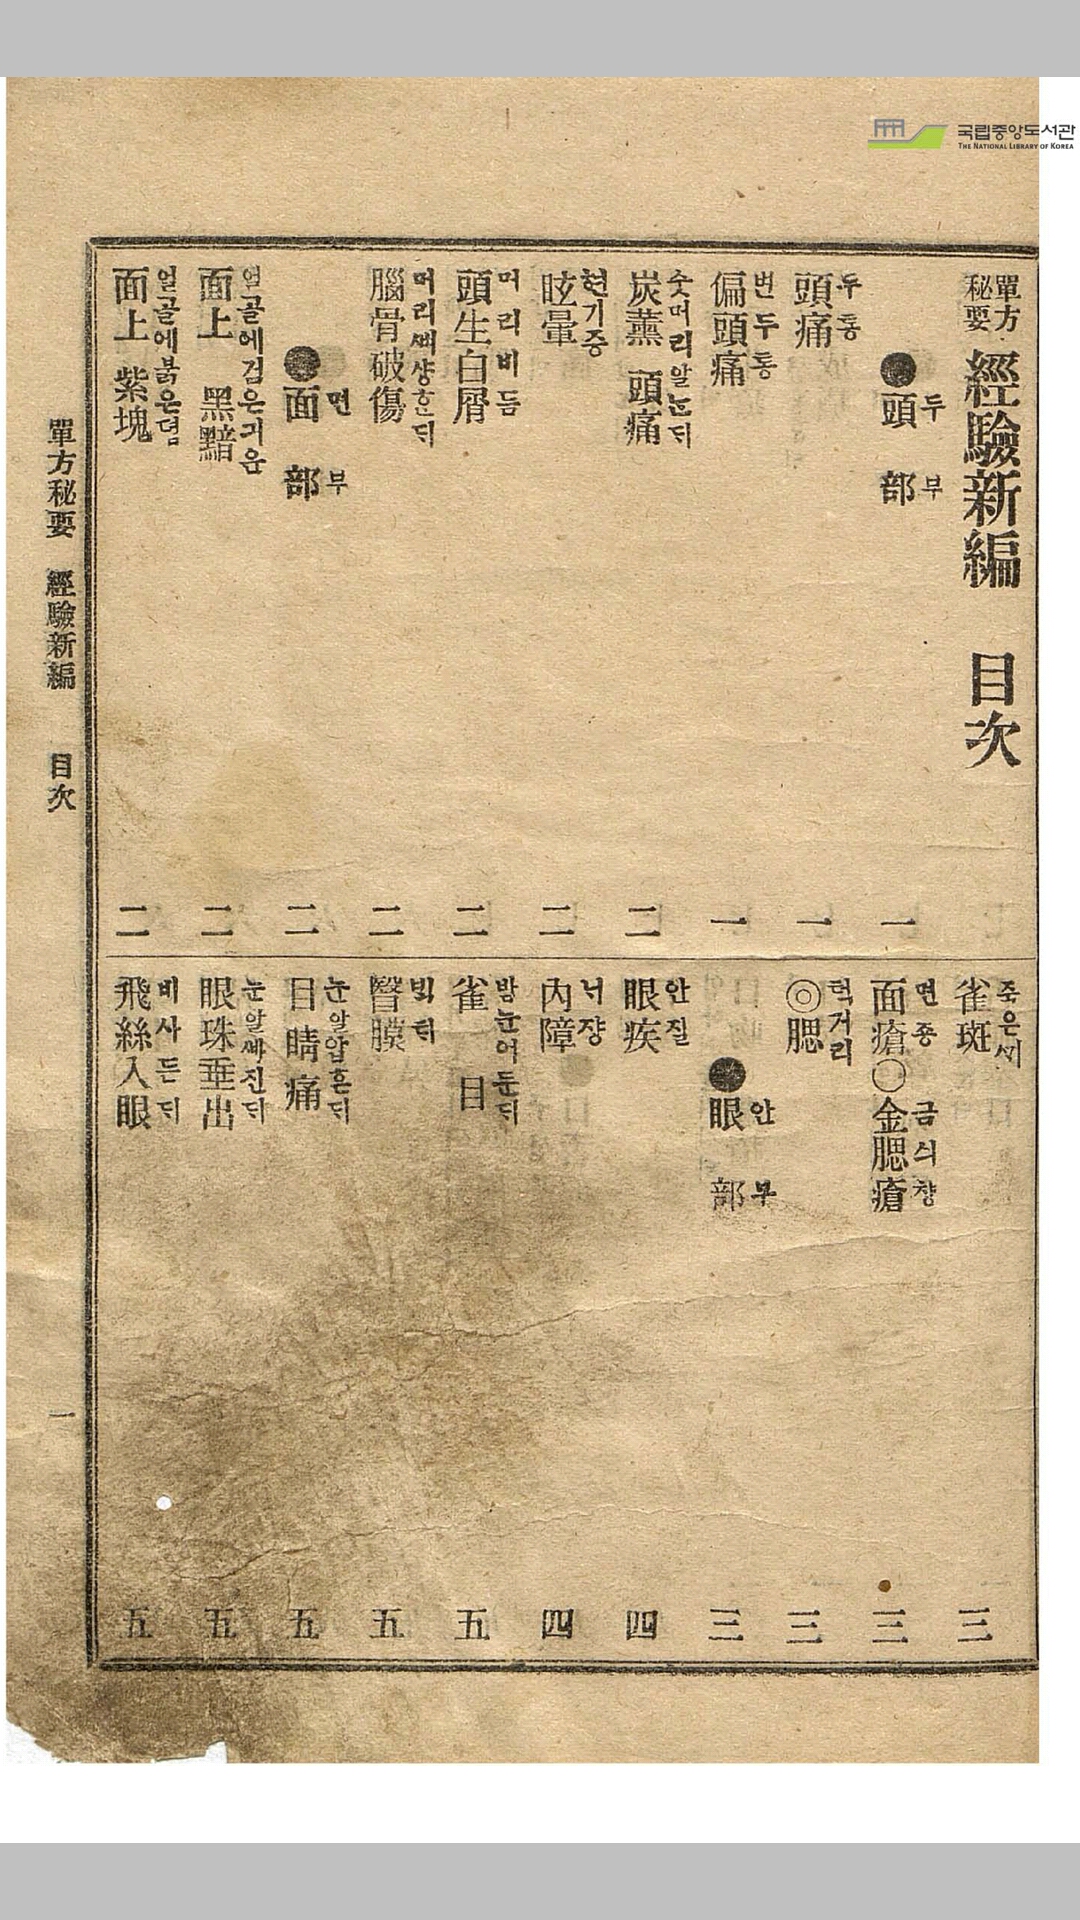 국립중앙도서관
THE NATIONAL LIBRARY OF KOREA
單方秘要 經驗新編 目次
●頭部 두부 一
頭痛 두통 一
偏頭痛 변두통 一
炭薰頭痛 숫머리알는듸 二
眩暈 현기증 二
頭生白屑 머리비듬 二
腦骨破傷 머리쎄상한듸 二
●面部 면부 二
面上黑黯 얼골에검은긔운 二
面上紫塊 얼골에붉은뎜 二
雀斑 죽은세 三
面瘡○金腮瘡 면종 금싀챵 三
◎腮 턱거리 三
●眼部 안부 三
眼疾 안질 四
內障 너쟝 四
雀目 밤눈어둔듸 五
瞖膜 五
目睛痛 눈알압흔듸 五
眼珠垂出 눈알싸진듸 五
飛絲入眼 비사든듸 五
單方秘要 經驗新編 目次 一